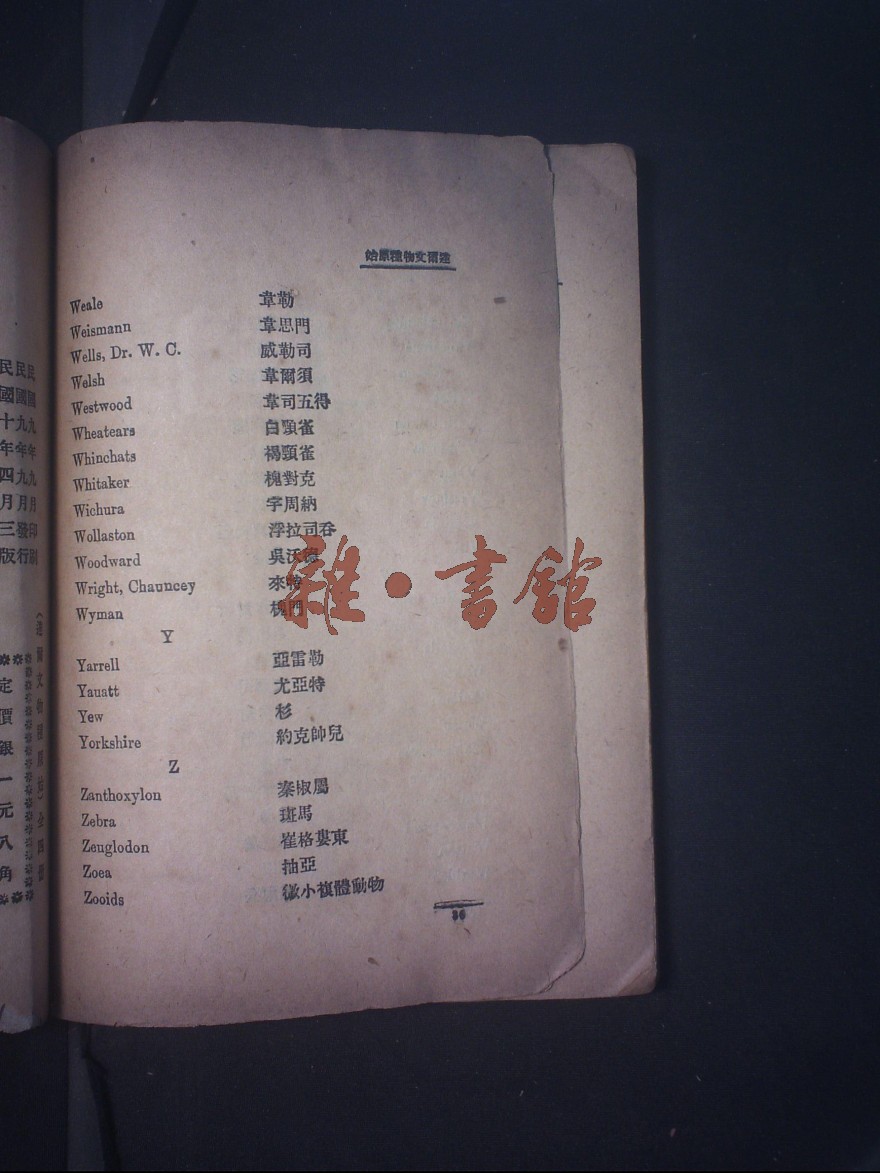 始原種物文爾達
Weale 韋勒
Weismann 韋思門
Wells, Dr. W. C. 威勒司
Welsh 韋爾須
Westwood 韋司五得
Wheatears 白頸雀
Whinchats 褐頸雀
Whitaker 槐對克
Wichura 字周納
Wollaston 浮拉司吞
Woodward 吳沃德
Wright, Chauncey 來
Wyman 槐門
Y
Yarrell 亞雷勒
Yauatt 尤亞特
Yew 杉
Yorkshire 約克帥兒
Z
Zanthoxylon 秦椒屬
Zebra 斑馬
Zeuglodon 崔格婁東
Zoea 抽亞
Zooids 微小複體動物
36
雜·書館
民國九年九月印刷
民國九年九月發行
民國十年四月三版
(達爾文物種原始)全四冊
定價銀一元八角